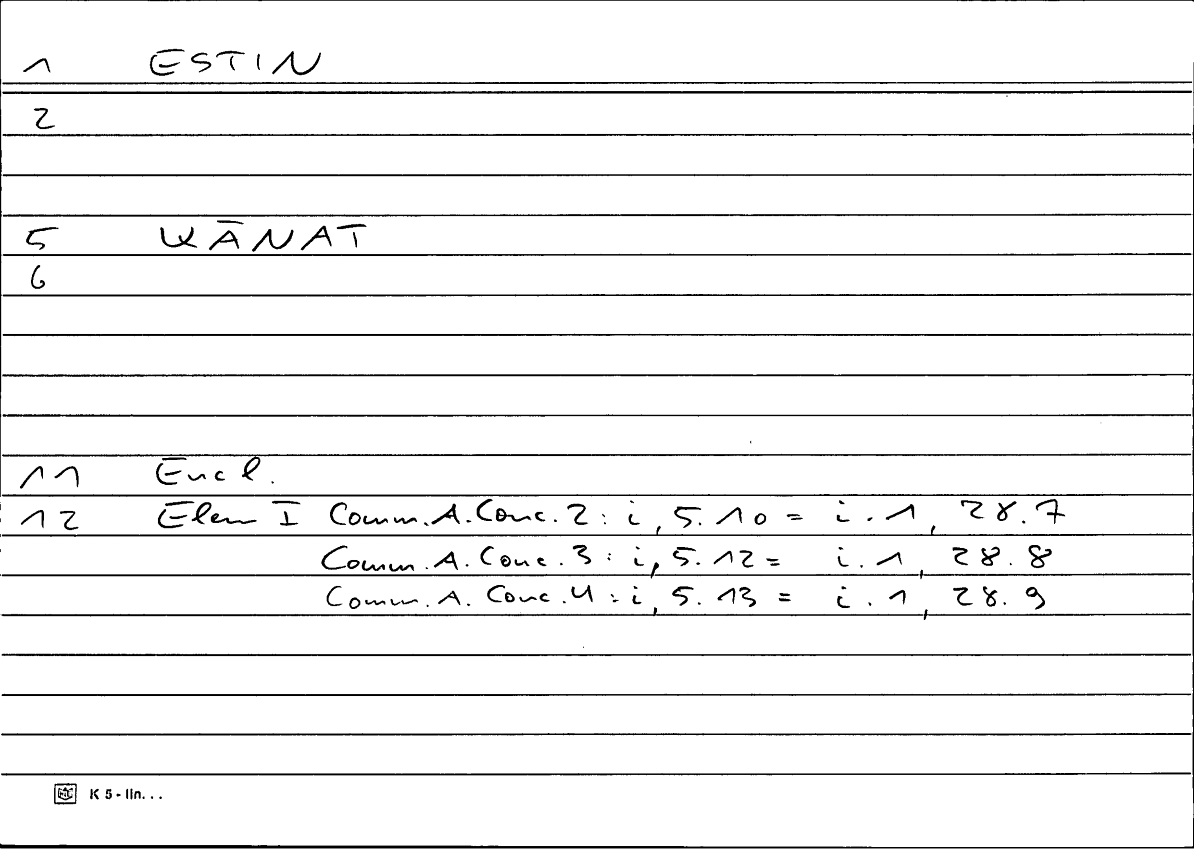 1 ESTIN
2
5 KĀNAT
6
11 Eucl.
12 Elem I Comm.A.Conc.2: i, 5.10 = i.1, 28.7
Comm.A.Conc.3: i, 5.12 = i.1, 28.8
Comm.A.Conc.4: i, 5.13 = i.1, 28.9
K 5 - lin...